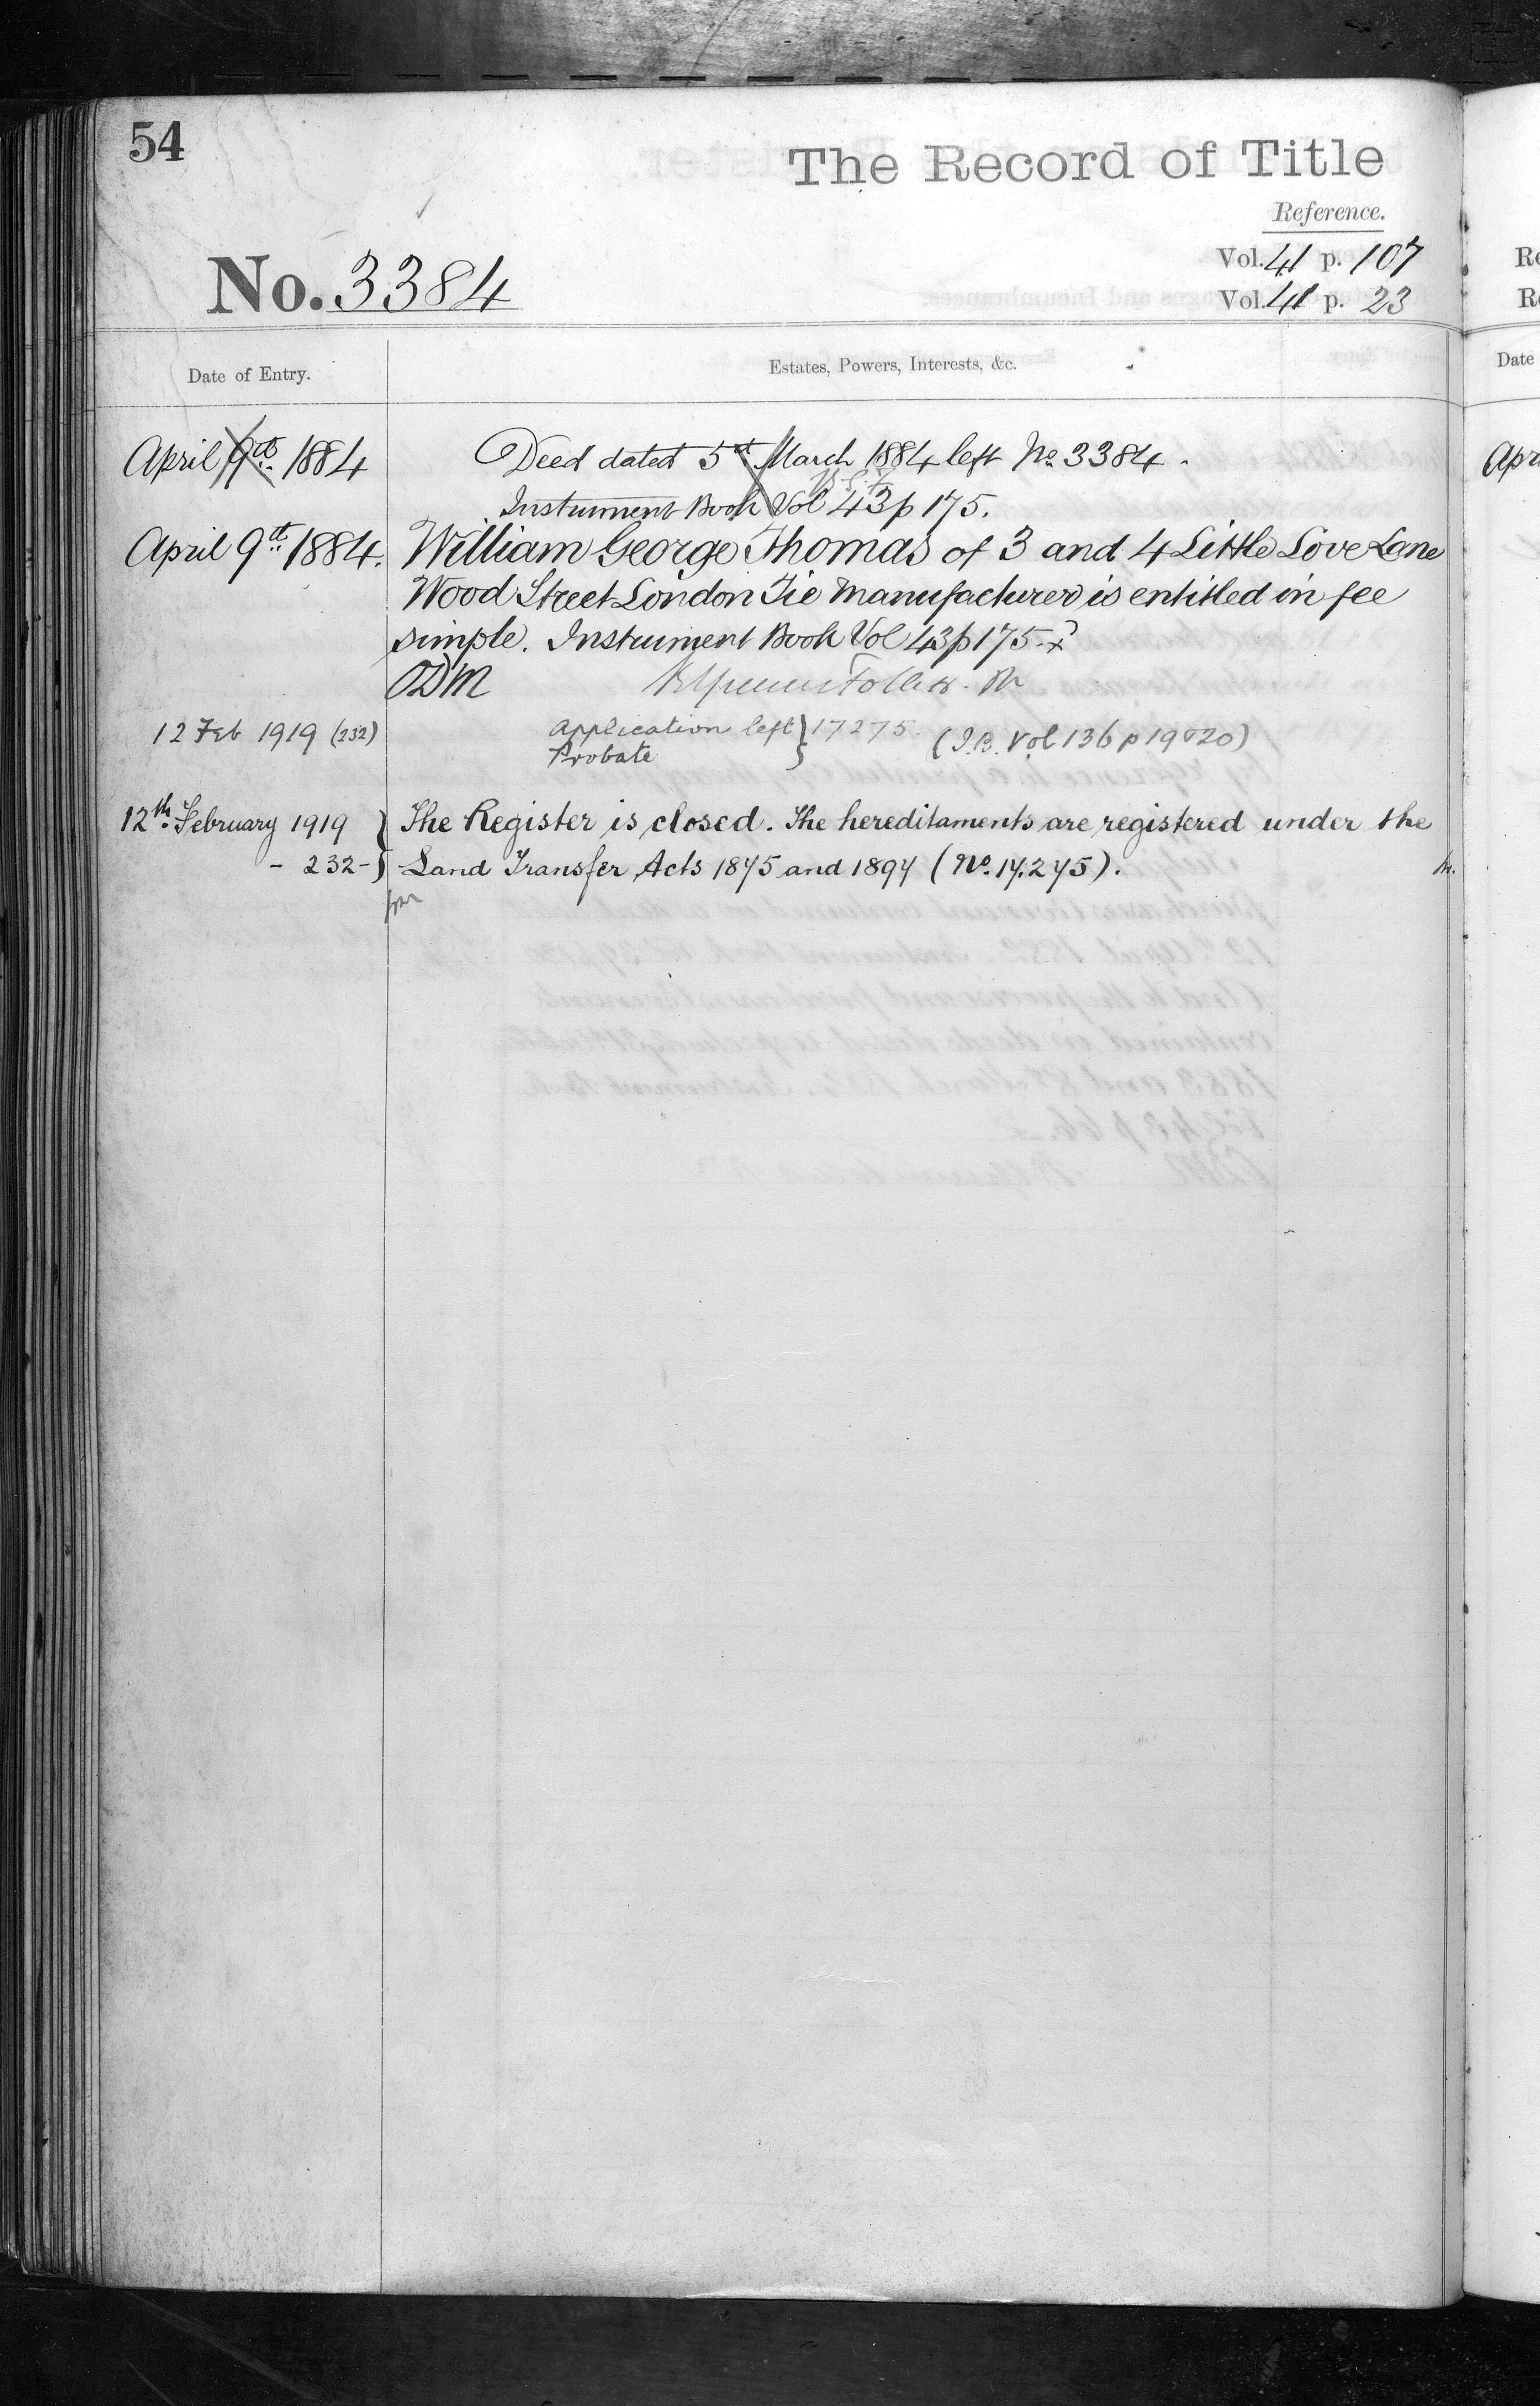 54
The Record of Title
Reference.
Vol. 41 p. 107
No. 3384
Vol. 41 p. 23
Date of Entry.
Estates, Powers, Interests, &c.
April 9th 1884
Deed dated 5th March 1884 left No 3384.
Instrument Book Vol 43 p 175.
April 9th 1884.
William George Thomas of 3 and 4 Little Love Lane
Wood Street London Tie Manufacturer is entitled in fee
simple. Instrument Book Vol 43 p 175.
ODM
12 Feb 1919 (232)
Application left } 17275. (I.B. Vol 136 p 19 & 20)
Probate }
12th February 1919 }
The Register is closed. The hereditaments are registered under the
- 232 - }
Land Transfer Acts 1875 and 1897 (No. 17.275).
Date